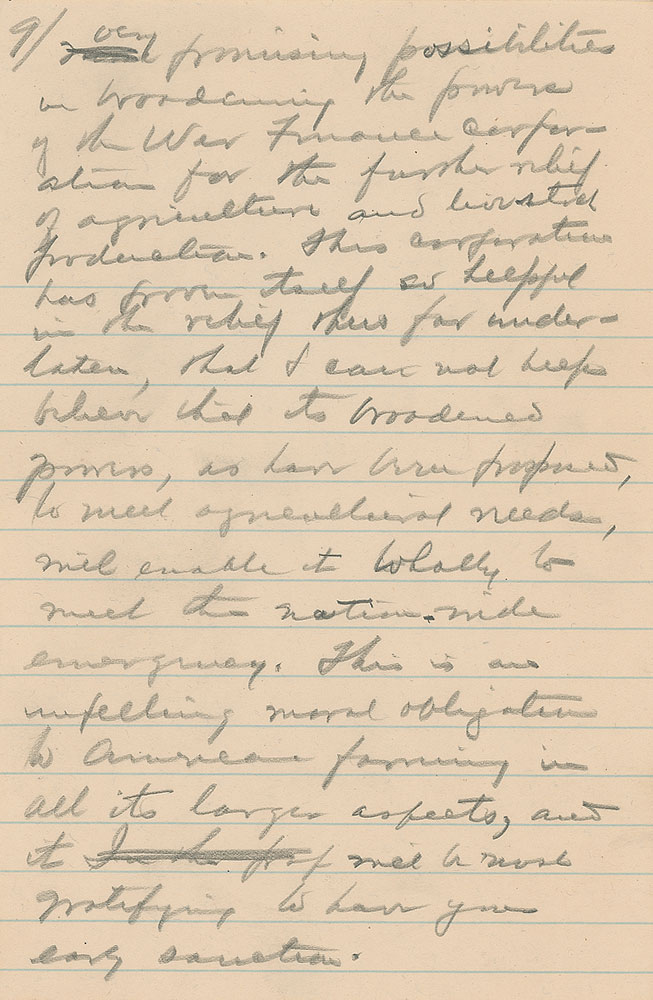 9/ very promising possibilities
in broadening the powers
of the War Finance corpor-
ation for the further relief
of agriculture and livestock
production. This corporation
has proven itself so helpful
in the relief thus far under-
taken, that I can not help
believe that its broadened
powers, as have been proposed,
to meet agricultural needs,
will enable it wholly to
meet the nation-wide
emergency. This is an
impelling moral obligation
to American farming in
all its larger aspects, and
it In the prop will be most
gratifying to have your
early sanction.